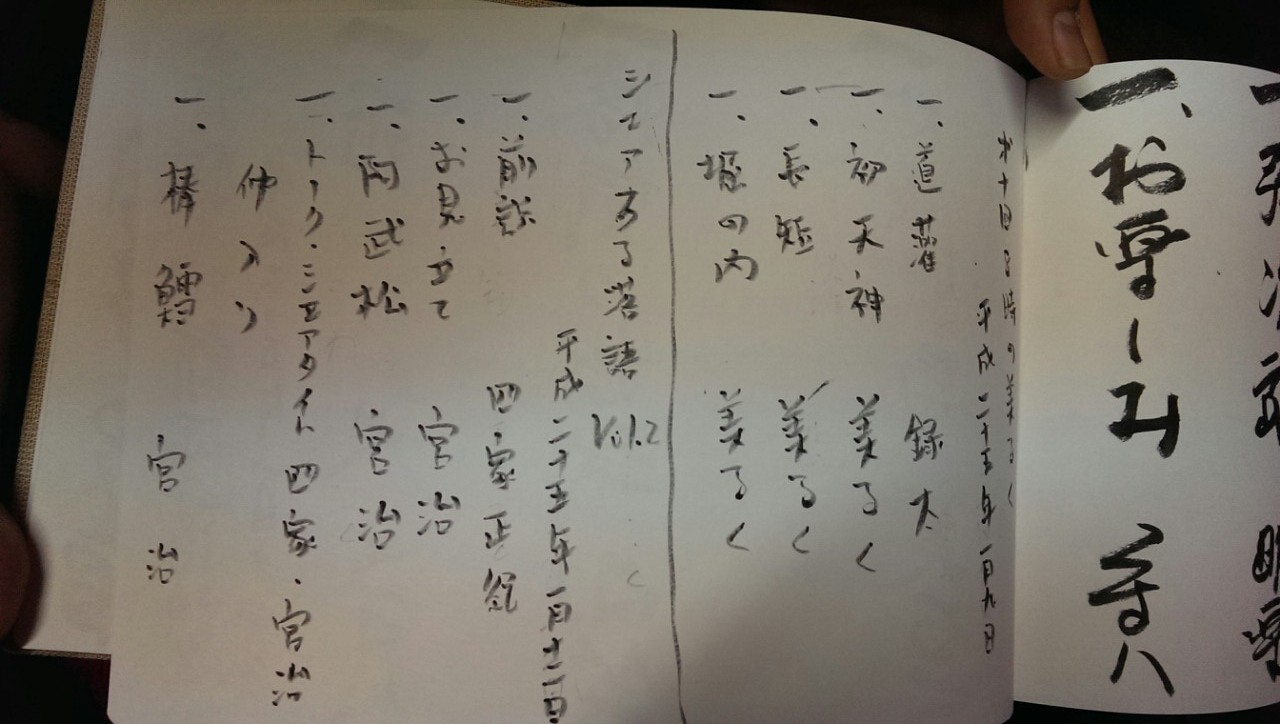 一、お楽しみ
才十回 8時の美るく
平成二十五年一月九日
一、道灌 録太
一、初天神 美るく
一、長短 美るく
一、堀の内 美るく
シェアする落語 Vol.2
平成二十五年一月十二日
一、前説 四家正紀
一、お見立て 宮治
一、阿武松 宮治
一、トーク・シェアタイム 四家・宮治
仲入り
一、棒鱈 宮治